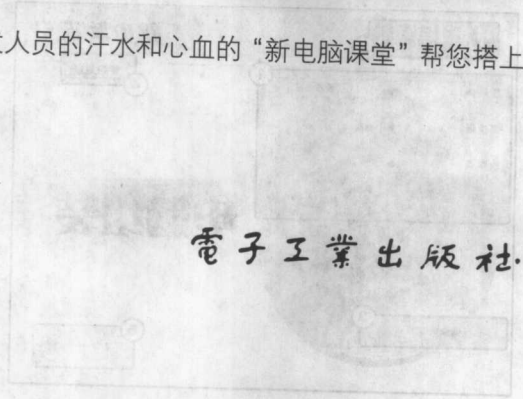 人员的汗水和心血的“新电脑课堂”帮您搭上
電子工業出版社·